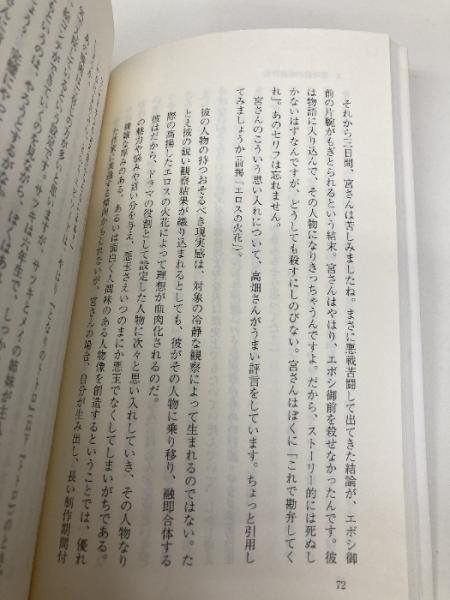 それから二日間、宮さんは苦しみましたね。まさに悪戦苦闘して出てきた結論が、エボシ御
前の片腕がもぎとられるという結末。宮さんはやはり、エボシ御前を殺せなかったんです。彼
は物語に入り込んで、その人物になりきっちゃうんですよ。だから、ストーリー的には死ぬし
かないはずなんですが、どうしても殺すにしのびない。宮さんはぼくに「これで勘弁してく
れ」。あのセリフは忘れません。
宮さんのこういう思い入れについて、高畑さんがうまい評言をしています。ちょっと引用し
てみましょうか(前掲「エロスの火花」)。
彼の人物の持つおそるべき現実感は、対象の冷静な観察によって生まれるのではない。た
とえ彼の鋭い観察結果が織り込まれるとしても、彼がその人物に乗り移り、融即合体する
際の高揚したエロスの火花によって理想が血肉化されるのだ。
彼はだから、ドラマの役割として設定した人物に次々と思い入れしていき、その人物なり
の魅力や悩みや言い分を与え、悪玉さえいつのまにか悪玉でなくしてしまいがちである。
複雑な厚みのある、あるいは面白く人間味のある人物像を創造するということでは、優れ
た作家に共通する傾向かもしれないが、宮さんの場合、自分が生み出し、長い制作期間付
72